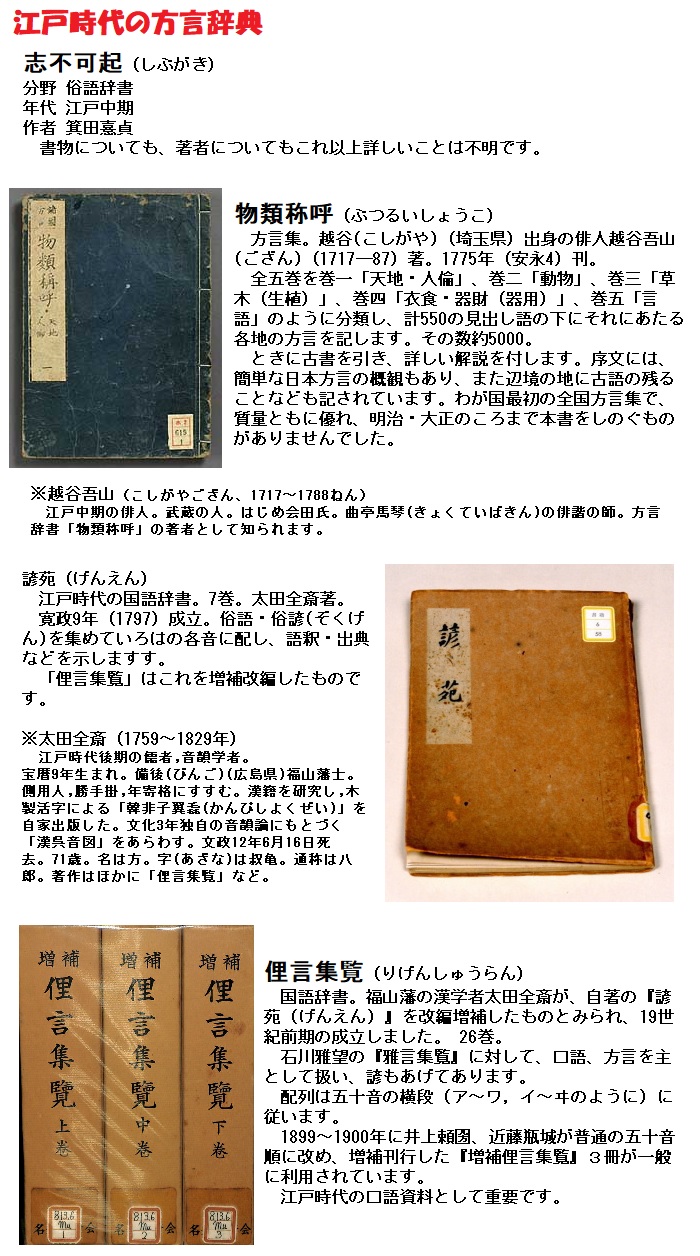 江戸時代の方言辞典
志不可起 (しぶがき)
分野 俗語辞書
年代 江戸中期
作者 箕田憙貞
書物についても、著者についてもこれ以上詳しいことは不明です。
物類称呼 (ぶつるいしょうこ)
方言集。越谷(こしがや) (埼玉県) 出身の俳人越谷吾山
(ござん) (1717―87) 著。1775年 (安永4) 刊。
全五巻を巻一「天地・人倫」、巻二「動物」、巻三「草
木 (生植) 」、巻四「衣食・器財 (器用) 」、巻五「言
語」のように分類し、計550の見出し語の下にそれにあたる
各地の方言を記します。その数約5000。
ときに古書を引き、詳しい解説を付します。序文には、
簡単な日本方言の概観もあり、また辺境の地に古語の残る
ことなども記されています。わが国最初の全国方言集で、
質量ともに優れ、明治・大正のころまで本書をしのぐもの
がありませんでした。
物類稱呼
天地
人倫
一
615
1
※越谷吾山 (こしがやござん、1717～1788ねん)
江戸中期の俳人。武蔵の人。はじめ会田氏。曲亭馬琴(きょくていばきん)の俳諧の師。方言
辞書「物類称呼」の著者として知られます。
諺苑 (げんえん)
江戸時代の国語辞書。7巻。太田全斎著。
寛政9年 (1797) 成立。俗語・俗諺(ぞくげ
ん)を集めていろはの各音に配し、語釈・出典
などを示しますす。
「俚言集覧」はこれを増補改編したもので
す。
※太田全斎 (1759～1829年)
江戸時代後期の儒者,音韻学者。
宝暦9年生まれ。備後(びんご)(広島県)福山藩士。
側用人,勝手掛,年寄格にすすむ。漢籍を研究し,木
製活字による「韓非子翼毳(かんぴしよくぜい)」を
自家出版した。文化3年独自の音韻論にもとづく
「漢呉音図」をあらわす。文政12年6月16日死
去。71歳。名は方。字(あざな)は叔亀。通称は八
郎。著作はほかに「俚言集覧」など。
諺苑
増補
俚言集覽
上巻
813.6
Mu
1
増補
俚言集覽
中巻
813.6
Mu
2
増補
俚言集覽
下巻
813.6
Mu
3
俚言集覧 (りげんしゅうらん)
国語辞書。福山藩の漢学者太田全斎が、自著の『諺
苑 (げんえん) 』を改編増補したものとみられ、19世
紀前期の成立しました。 26巻。
石川雅望の『雅言集覧』に対して、口語、方言を主
として扱い、諺もあげてあります。
配列は五十音の横段 (ア～ワ，イ～ヰのように) に
従います。
1899～1900年に井上頼圀、近藤瓶城が普通の五十音
順に改め、増補刊行した『増補俚言集覧』３冊が一般
に利用されています。
江戸時代の口語資料として重要です。